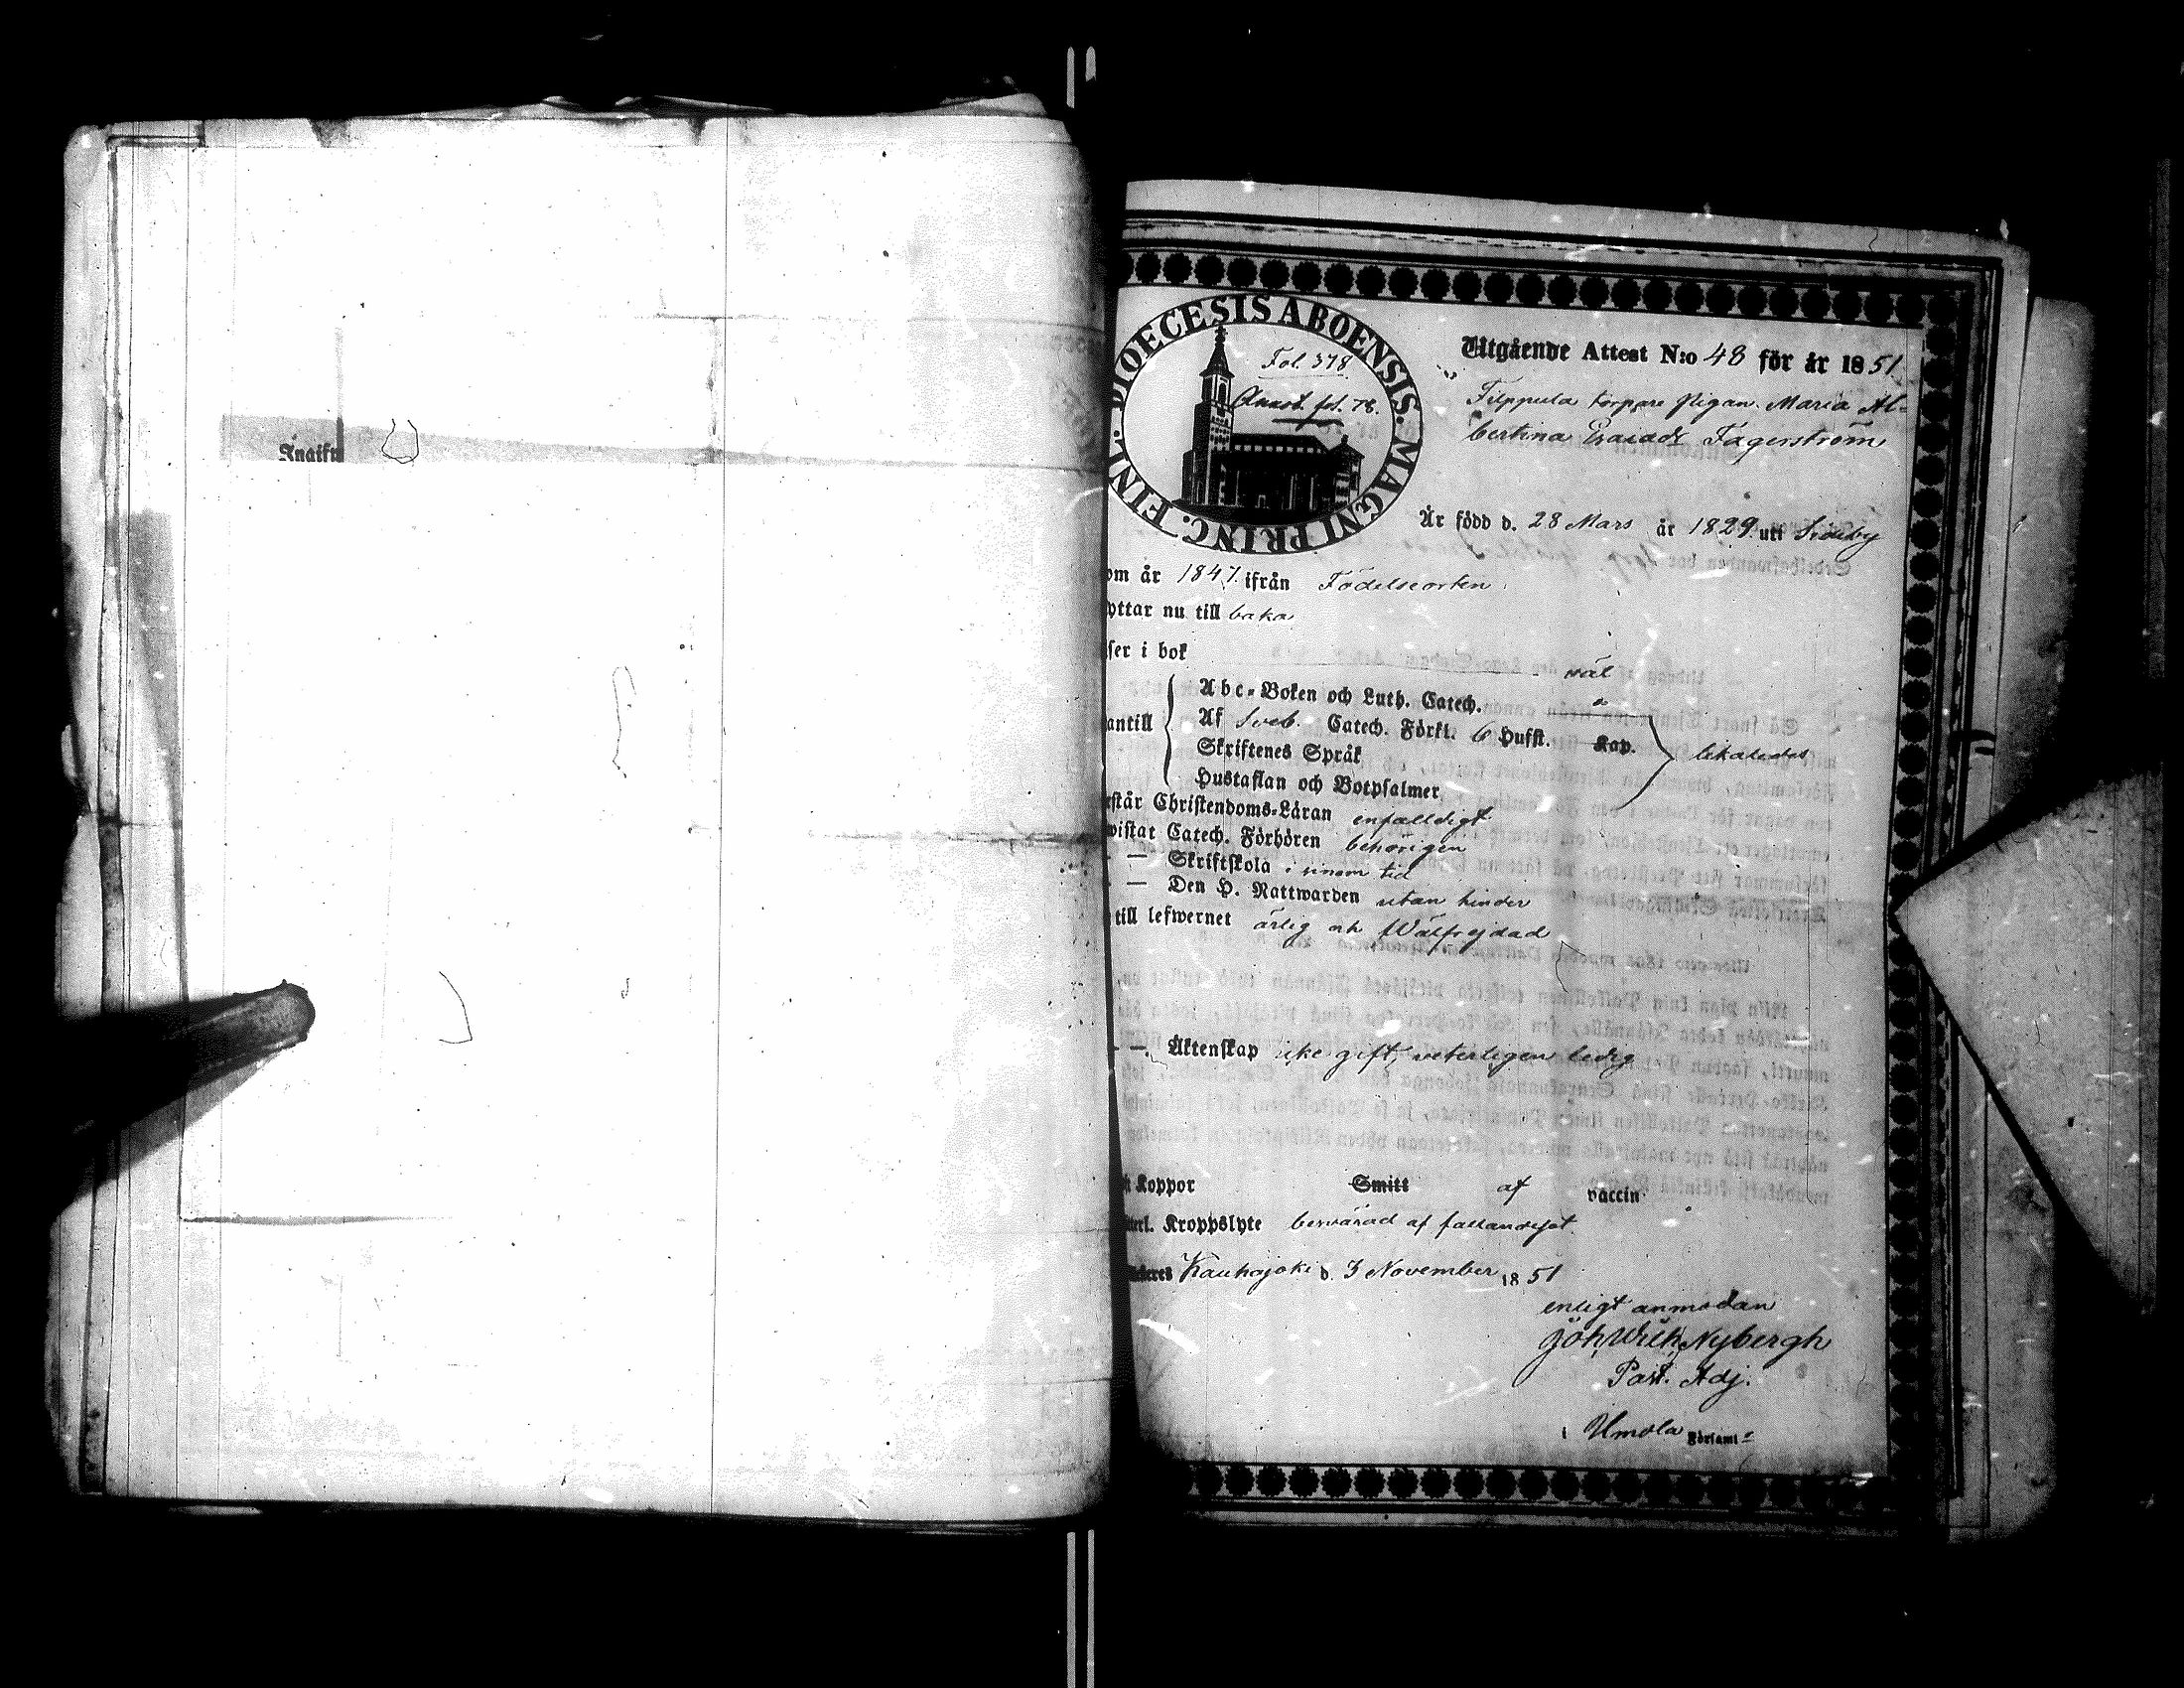 DIOECESIS ABOENSIS. MAGNI PRINC. FINL.
Fol. 378
fol. 78.
Utgående Attest N:o 48 för år 1851
Filppula torpare pigan Maria Al-
bertina Esaiadr Fagerström
Är född d. 28 Mars år 1829 uti Sideby
om år 1847 ifrån Födelseorten
yttar nu till baka
ser i bok väl
antill
Abc-Boken och Luth. Catech. "
Af Sveb. Catech. Förkl. 6 Hufst. Kap.
Skriftenes Språk
Hustaflan och Botpsalmer
likaledes
estår Christendoms-Läran enfalldigt
wistat Catech. Förhören behörigen
— Skriftskola i sinom tid
— Den H. Nattwarden utan hinder
till lefwernet ärlig och Wälfrejdad
— Äktenskap icke gift, veterligen ledig
Koppor Smitt af vaccin
terl. Kroppslyte besvärad af fallandesjot
Kauhajoki d. 3 November 1851
enligt anmodan
Joh. Wilh. Nybergh
Past. Adj.
i Ilmola Församl: